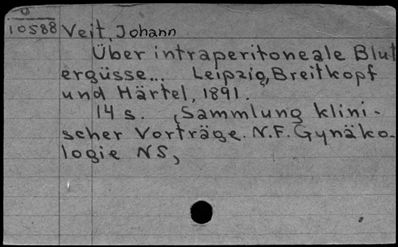 10588 Veit, Johann
Über intraperitoneale Blut
ergüsse... Leipzig, Breitkopf
und Härtel, 1891.
14 s. (Sammlung klini-
scher Vorträge. N.F. Gynäko-
logie